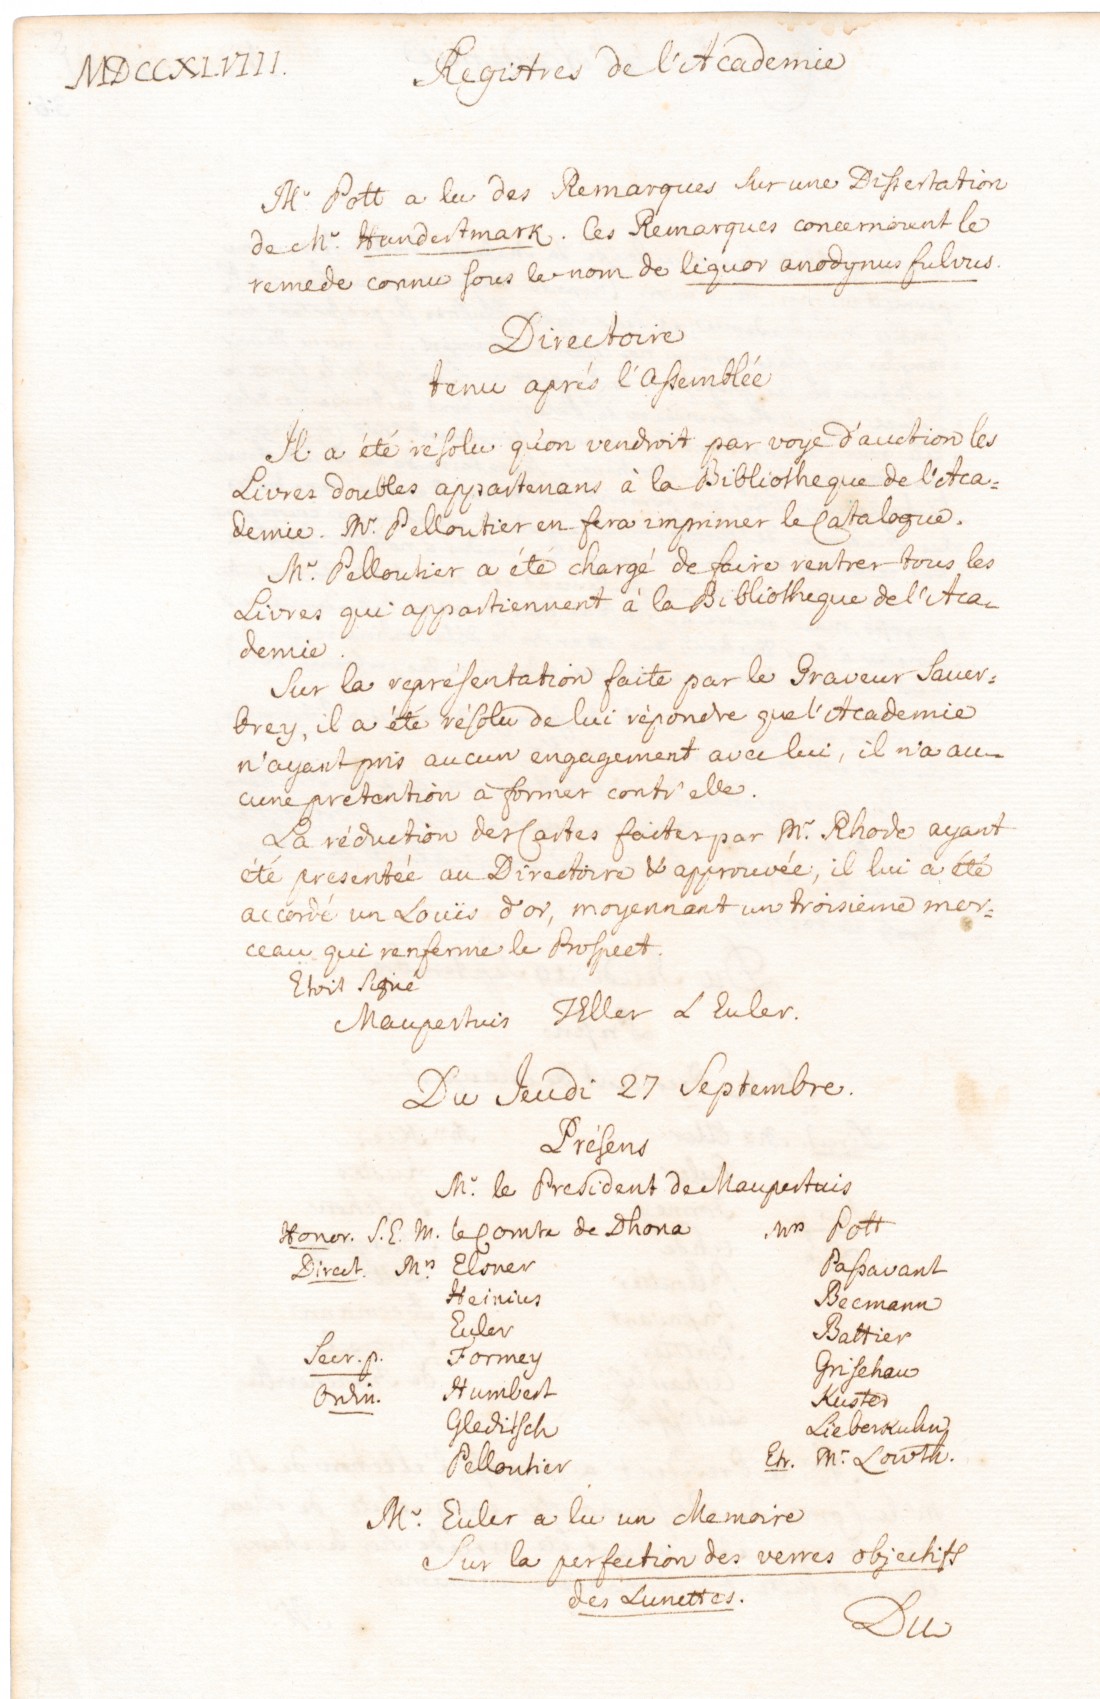 MDCCXLVIII.
Registres de l'Academie
Mr. Pott a lu des Remarques sur une Dissertation
de Mr. Hundertmark. Ces Remarques concernoient le
remede connu sous le nom de liquor anodynus fulvus.
Directoire
tenu aprés l'Assemblée
Il a été résolu qu'on vendroit par voye d'auction les
Livres doubles appartenans à la Bibliotheque de l'Aca=
demie. Mr. Pelloutier en fera imprimer le Catalogue.
Mr. Pelloutier a été chargé de faire rentrer tous les
Livres qui appartiennent à la Bibliotheque de l'Aca-
demie.
Sur la représentation faite par le Graveur Sauer=
brey, il a été résolu de lui répondre que l'Academie
n'ayant pris aucun engagement avec lui, il n'a au-
cune pretention à former contr'elle.
La réduction des Cartes faites par Mr. Rhode ayant
été presentée au Directoire & approuvée, il lui a été
accordé un Louïs d'or, moyennant un troisieme mor=
ceau qui renferme le Prospect.
Etoit signé
Maupertuis Eller L Euler.
Du Jeudi 27 Septembre.
Présens
Mr. le President de Maupertuis
Honor. S. E. M. le Comte de Dhona Mrs Pott
Direct. Mrs Elsner Passavant
Heinius Becmann
Euler Battier
Secr. p. Formey Grischau
Ordin. Humbert Kuster
Gleditsch Lieberkuhn
Pelloutier Etr. Mr. Lowth.
Mr. Euler a lu un Memoire
Sur la perfection des verres objectifs
des Lunettes.
Du